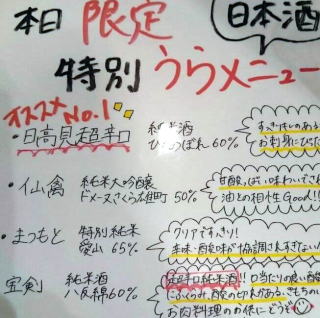 本日 限定
日本酒
特別 うらメニュー
オススメNo.1
・日高見超辛口 純米酒
ひとめぼれ 60%
お刺身にぴった
・仙禽 純米大吟醸
ドメーヌさくら・雄町 50%
甘酸っぱい味わいでされ
油との相性Good!!
・まつもと 特別純米
愛山 65%
クリアですっきり!
旨味・酸味が協調されすぎない
宝剣 純米酒
八反錦60%
超辛口純米酒!! 口当たりの良い酸
お肉料理のお供にどうぞ